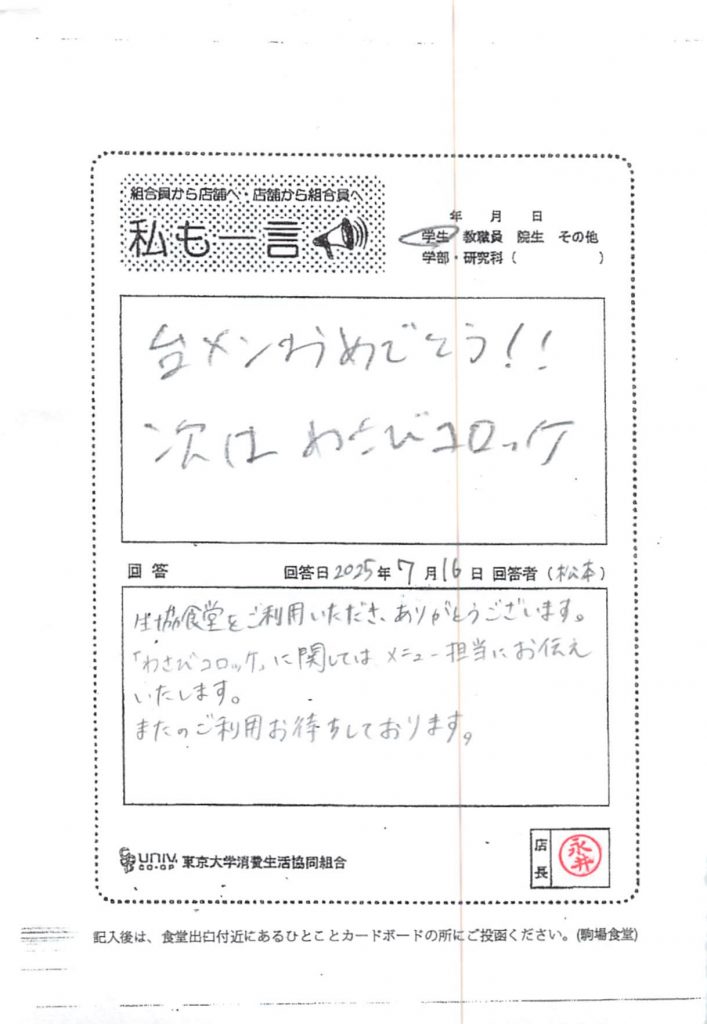 組合員から店舗へ・店舗から組合員へ
私も一言
年 月 日
学生 教職員 院生 その他
学部・研究科( )
台メンおめでとう!!
次は わさびコロッケ
回答 回答日2025年7月16日 回答者(松本)
生協食堂をご利用いただき、ありがとうございます。
「わさびコロッケ」に関しては メニュー担当にお伝え
いたします。
またのご利用お待ちしております。
UNIV.
CO-OP
東京大学消費生活協同組合
店長
永井
記入後は、食堂出口付近にあるひとことカードボードの所にご投函ください。(駒場食堂)